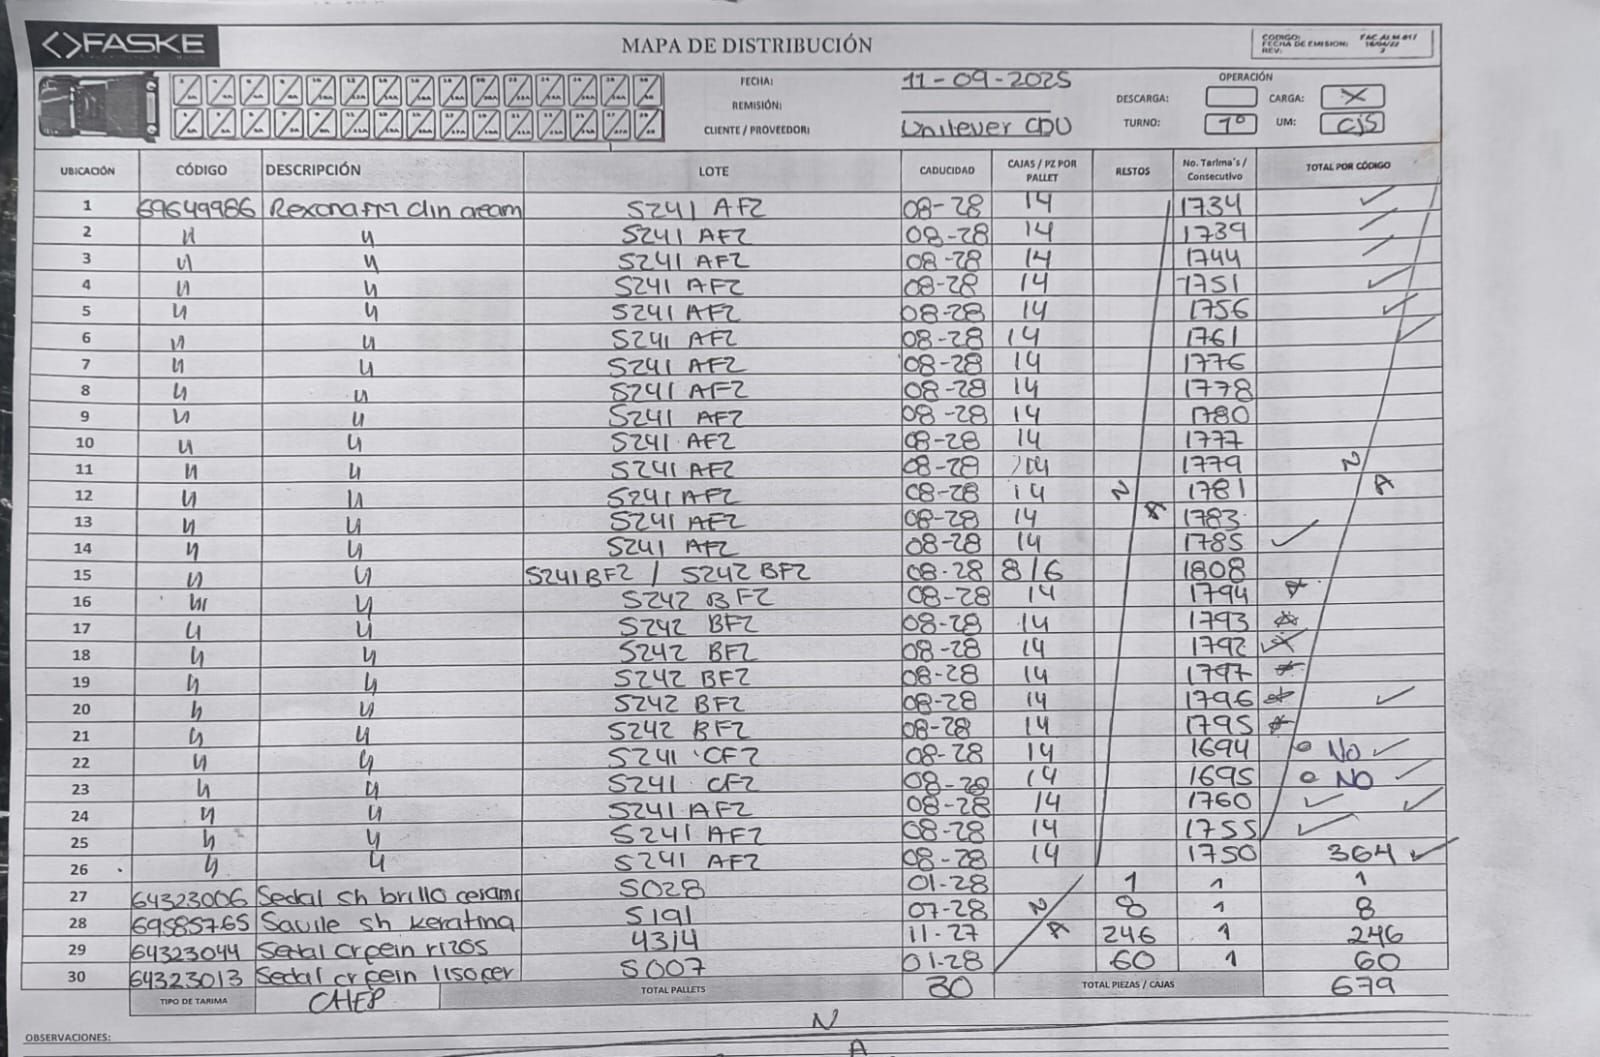 <>FASKE
MAPA DE DISTRIBUCIÓN
CODIGO: FAC ALM 017
FECHA DE EMISION: 16/04/22
REV: 2
FECHA: 11-09-2025
REMISIÓN:
CLIENTE / PROVEEDOR: Unilever CDU
OPERACIÓN
DESCARGA: CARGA: X
TURNO: 1º UM: CJS
UBICACIÓN CÓDIGO DESCRIPCIÓN LOTE CADUCIDAD CAJAS / PZ POR PALLET RESTOS No. Tarima's / Consecutivo TOTAL POR CÓDIGO
1 69649986 Rexona clin cream S241 AF2 08-28 14 1734 ✓
2 " " S241 AF2 08-28 14 1739
3 " " S241 AF2 08-28 14 1744
4 " " S241 AF2 08-28 14 1751 ✓
5 " " S241 AF2 08-28 14 1756 ✓
6 " " S241 AF2 08-28 14 1761 ✓
7 " " S241 AF2 08-28 14 1776
8 " " S241 AF2 08-28 14 1778
9 " " S241 AF2 08-28 14 1780
10 " " S241 AF2 08-28 14 1777
11 " " S241 AF2 08-28 14 1779 N
12 " " S241 AF2 08-28 14 N 1781 A
13 " " S241 AF2 08-28 14 A 1783
14 " " S241 AF2 08-28 14 1785 ✓
15 " " S241BF2 / S242 BF2 08-28 8/6 1808
16 " " S242 BF2 08-28 14 1794
17 " " S242 BF2 08-28 14 1793
18 " " S242 BF2 08-28 14 1792
19 " " S242 BF2 08-28 14 1797
20 " " S242 BF2 08-28 14 1796 ✓
21 " " S242 BF2 08-28 14 1795
22 " " S241 CF2 08-28 14 1694 No ✓
23 " " S241 CF2 08-28 14 1695 NO ✓
24 " " S241 AF2 08-28 14 1760 ✓ ✓
25 " " S241 AF2 08-28 14 1755 ✓
26 " " S241 AF2 08-28 14 1750 364 ✓
27 64323006 Sedal sh brillo cerami S028 01-28 1 1 1
28 69585765 Savile sh keratina S191 07-28 N 8 1 8
29 64323044 Sedal cr pein rizos 4314 11-27 A 246 1 246
30 64323013 Sedal cr pein liso cer S007 01-28 60 1 60
TIPO DE TARIMA CHEP TOTAL PALLETS 30 TOTAL PIEZAS / CAJAS 679
N
OBSERVACIONES:
A